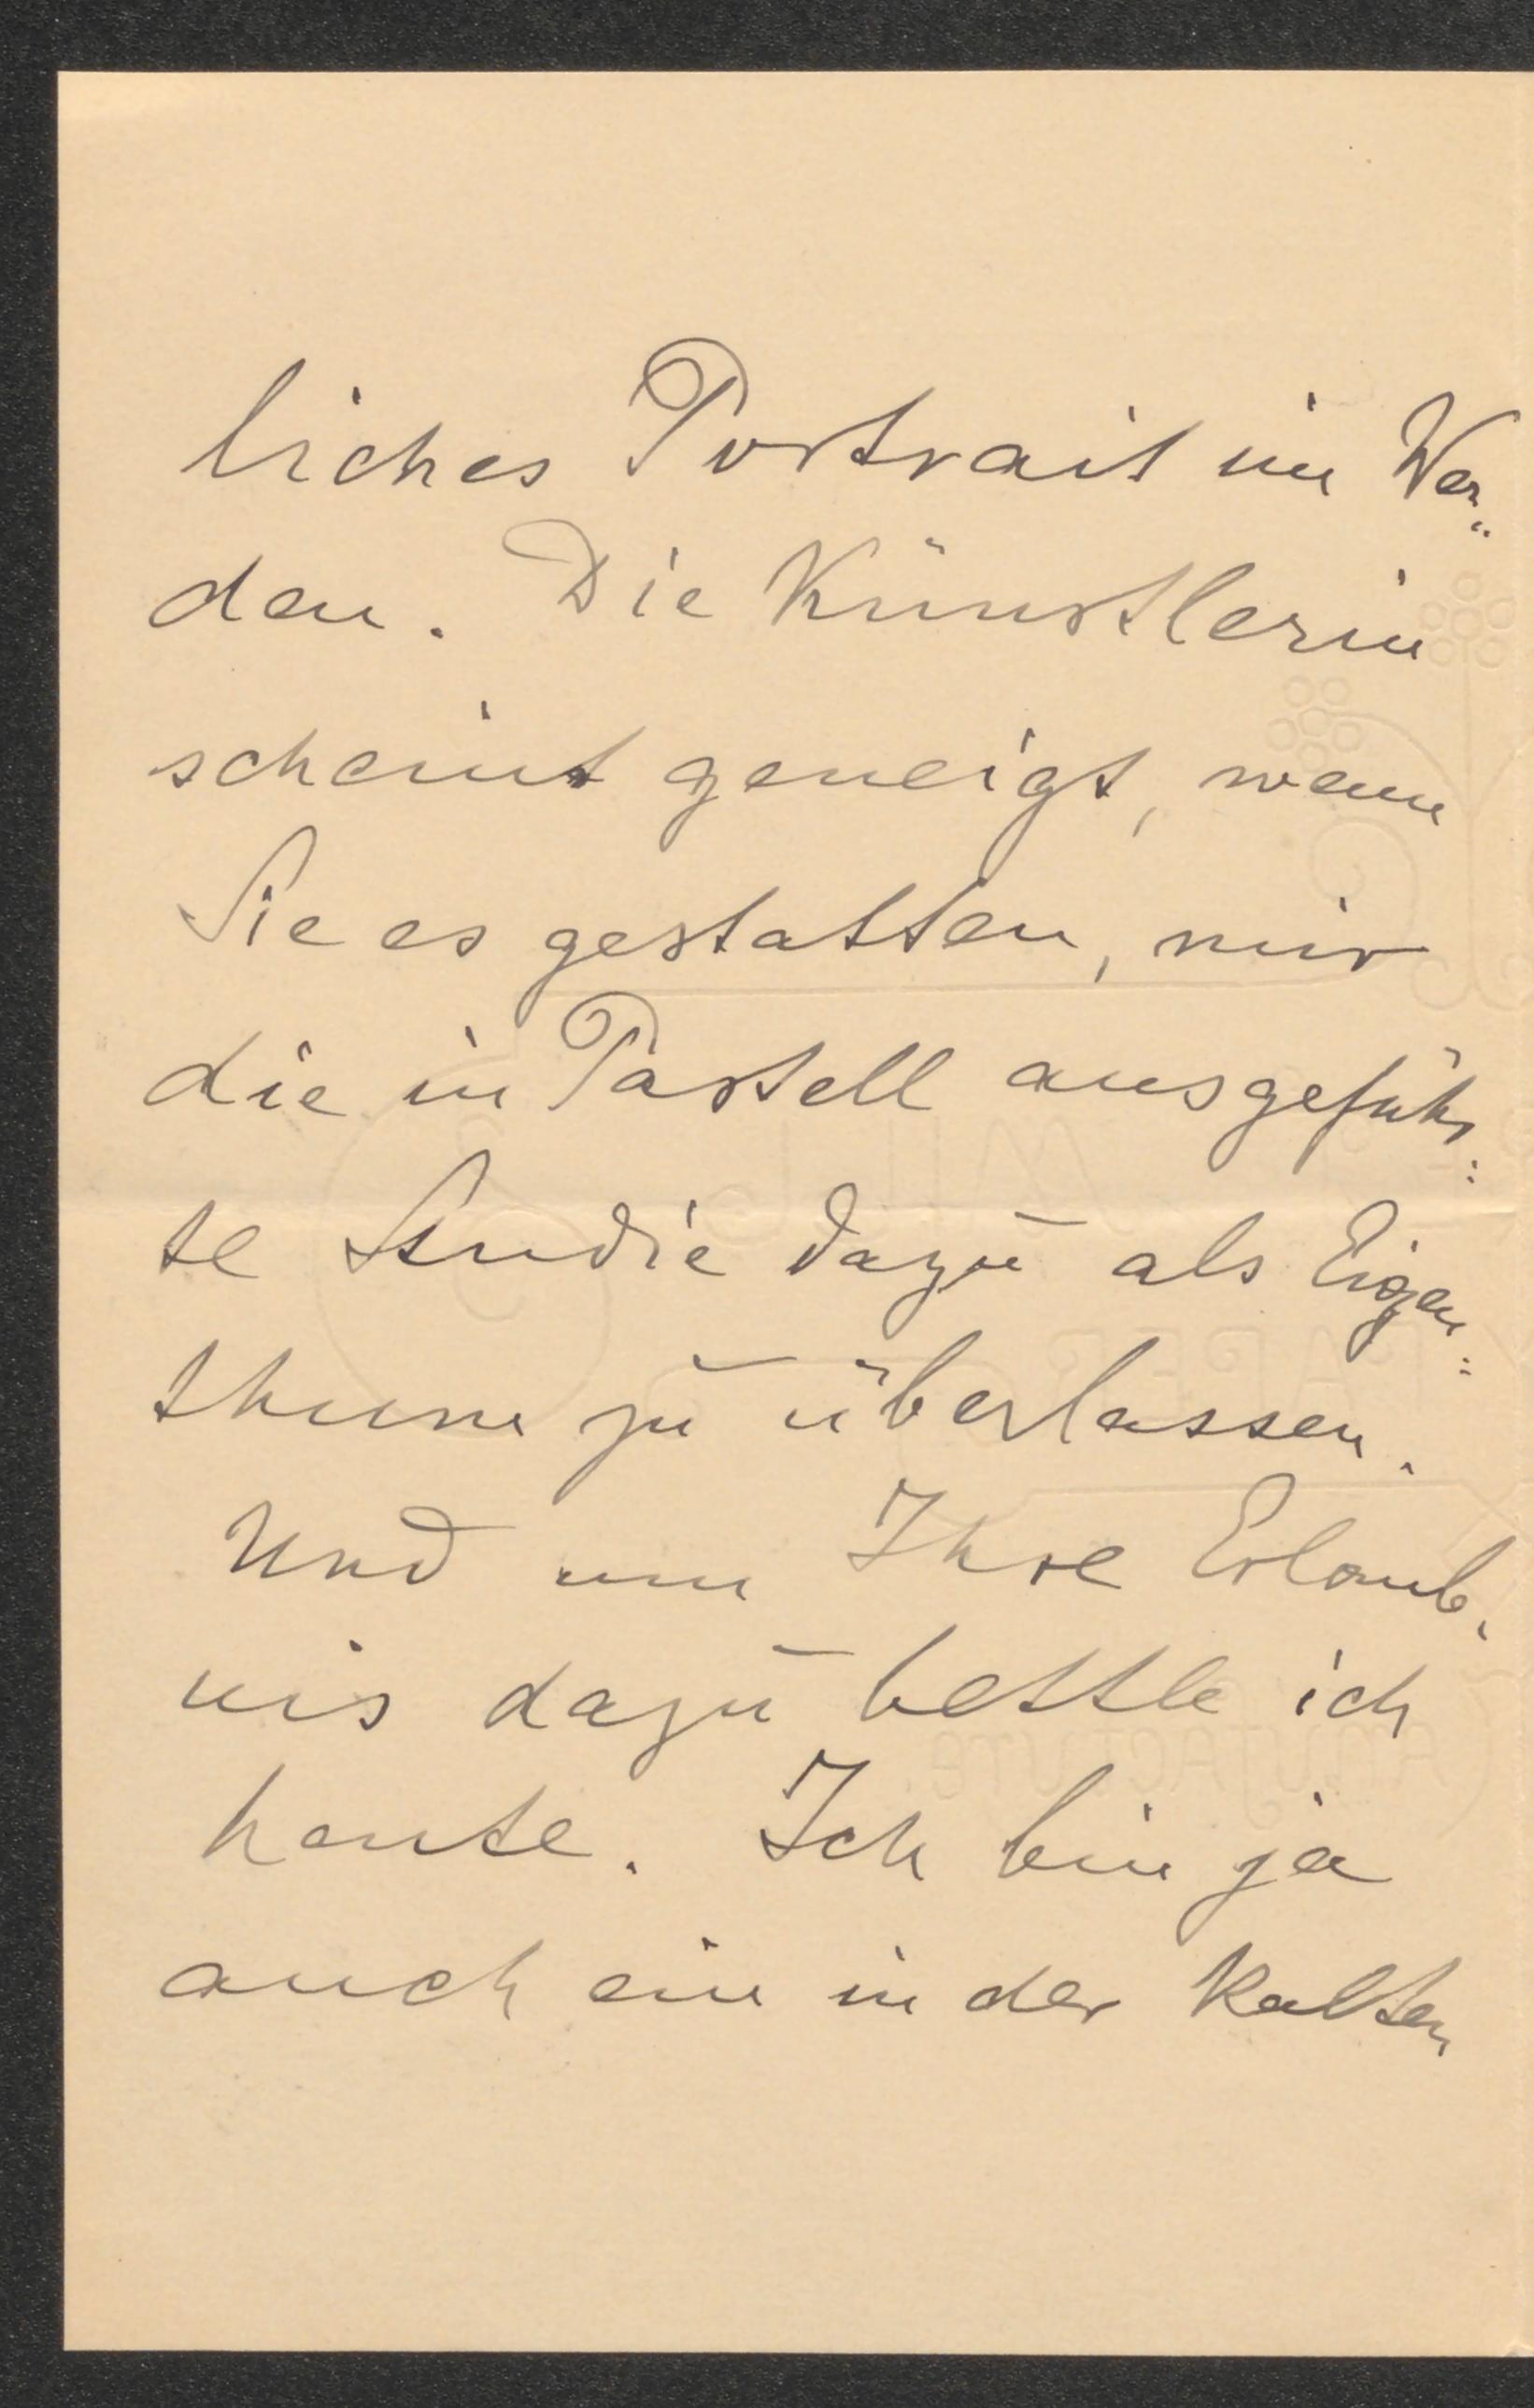 liches Portrait im Wer„
den. Die Künstlerin
scheint geneigt, wenn
Sie es gestatten, mir
die in Pastell ausgeführ:
te Studie dazu als Eigen:
thum zu überlassen.
Und um Ihre Erlaub:
nis dazu bettle ich
heute. Ich bin ja
auch ein in der kalten